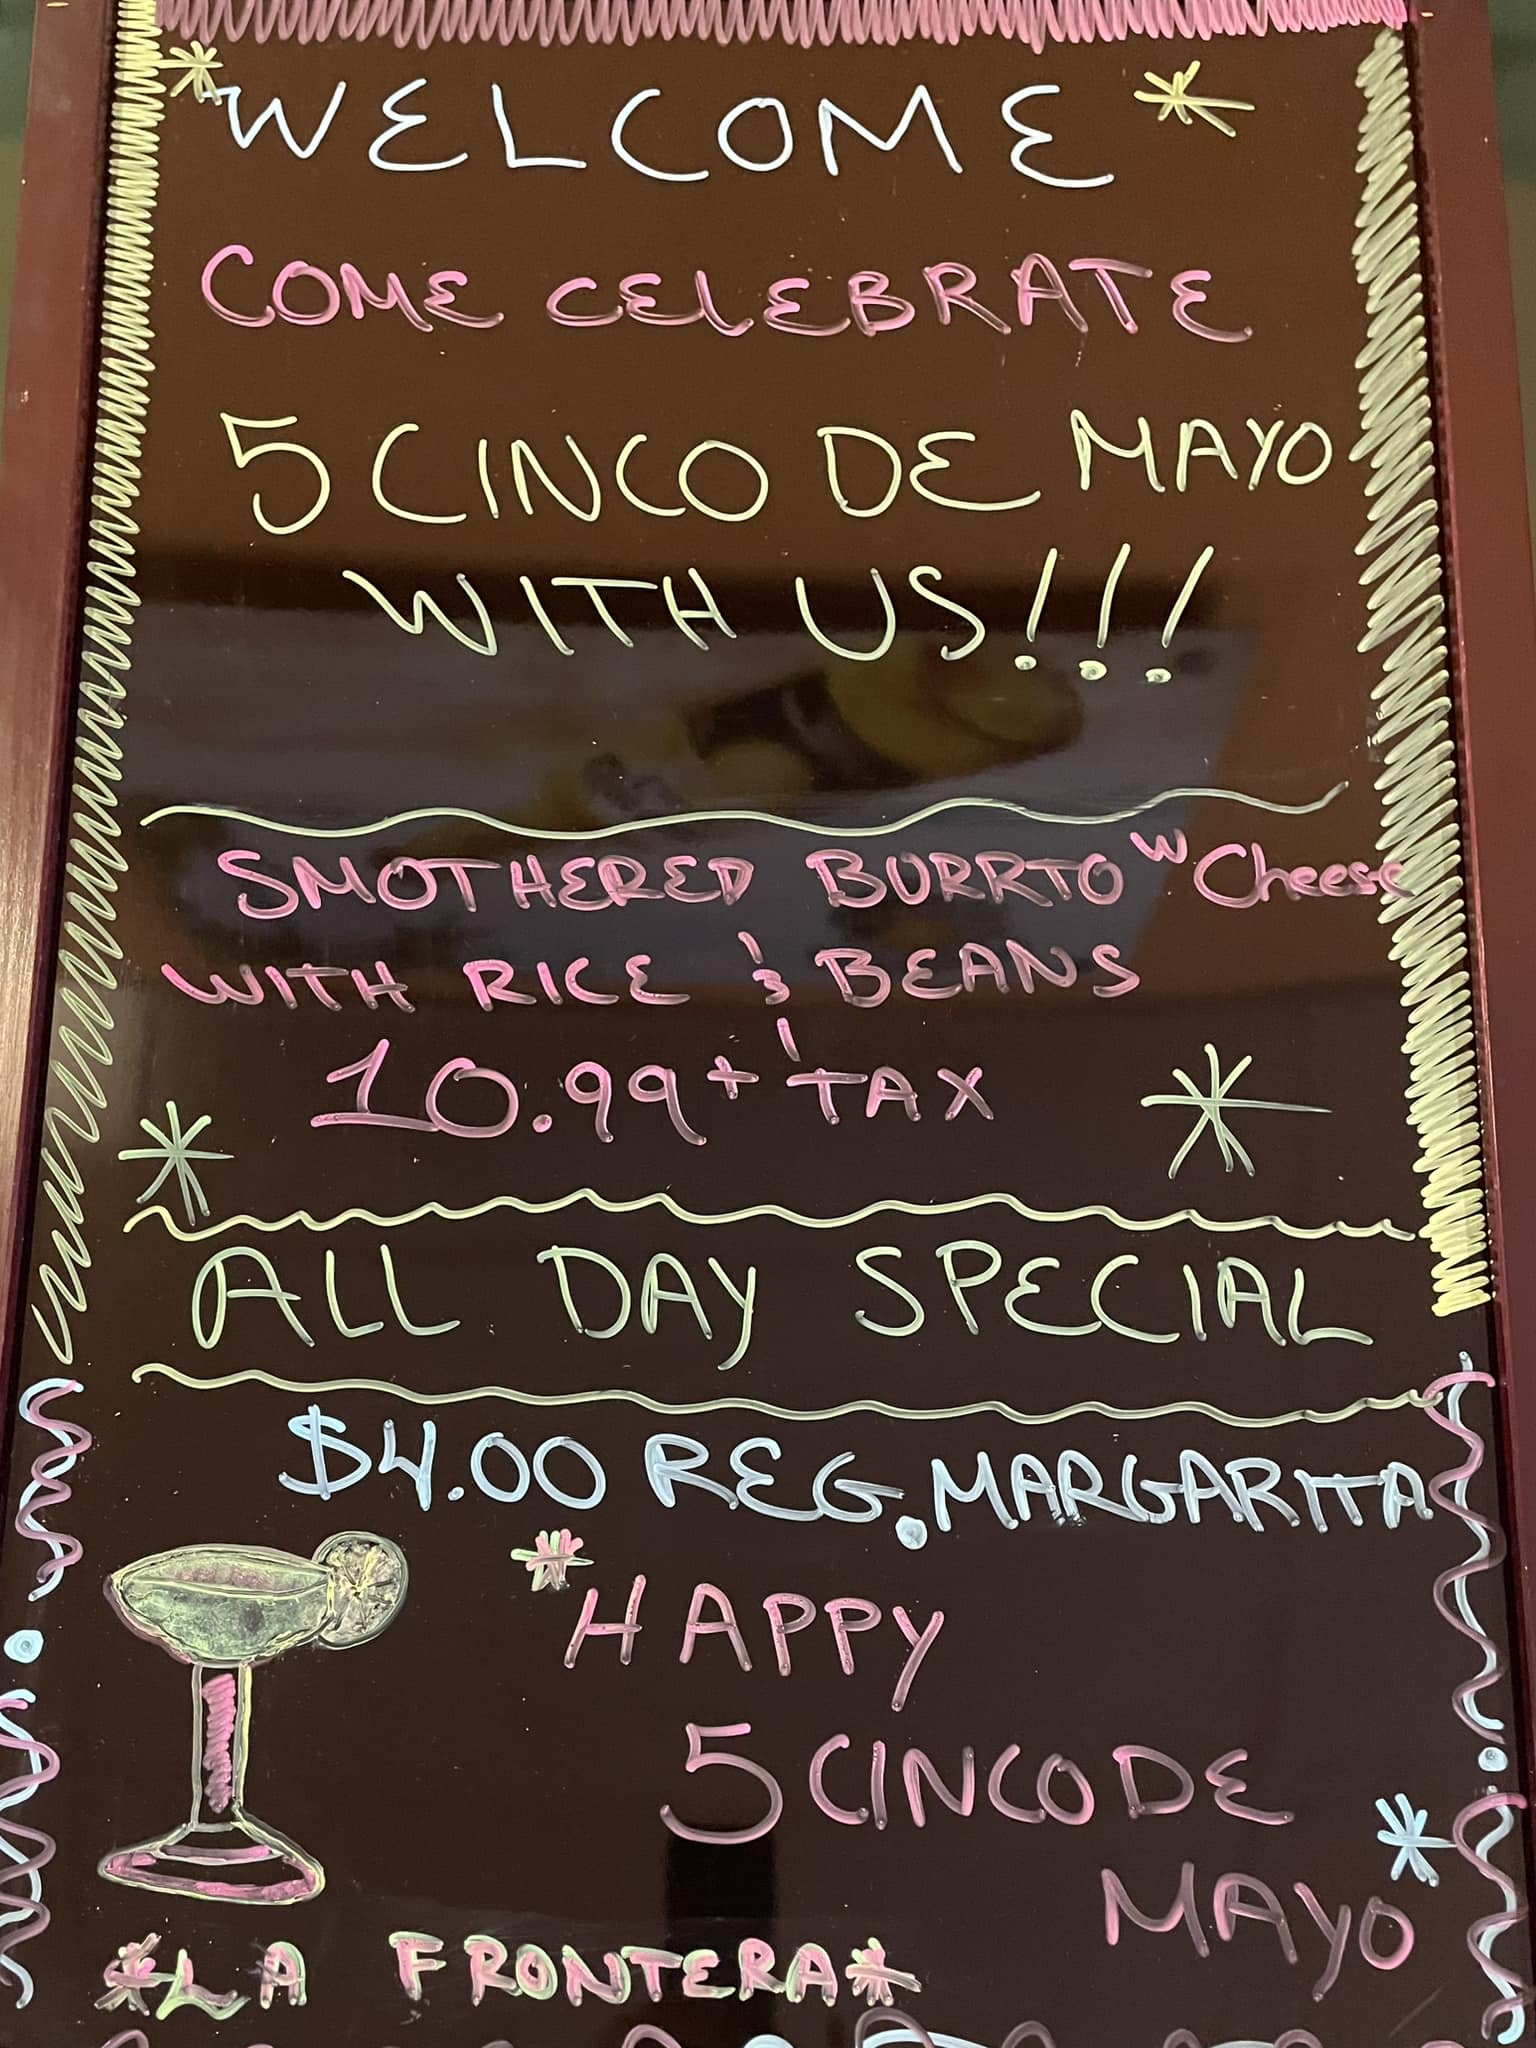 *WELCOME*
COME CELEBRATE
5 CINCO DE MAYO
WITH US!!!
SMOTHERED BURRTO W Cheese
WITH RICE & BEANS
10.99 + TAX
ALL DAY SPECIAL
$4.00 REG. MARGARITA
*HAPPY
5 CINCO DE
MAYO*
*LA FRONTERA*